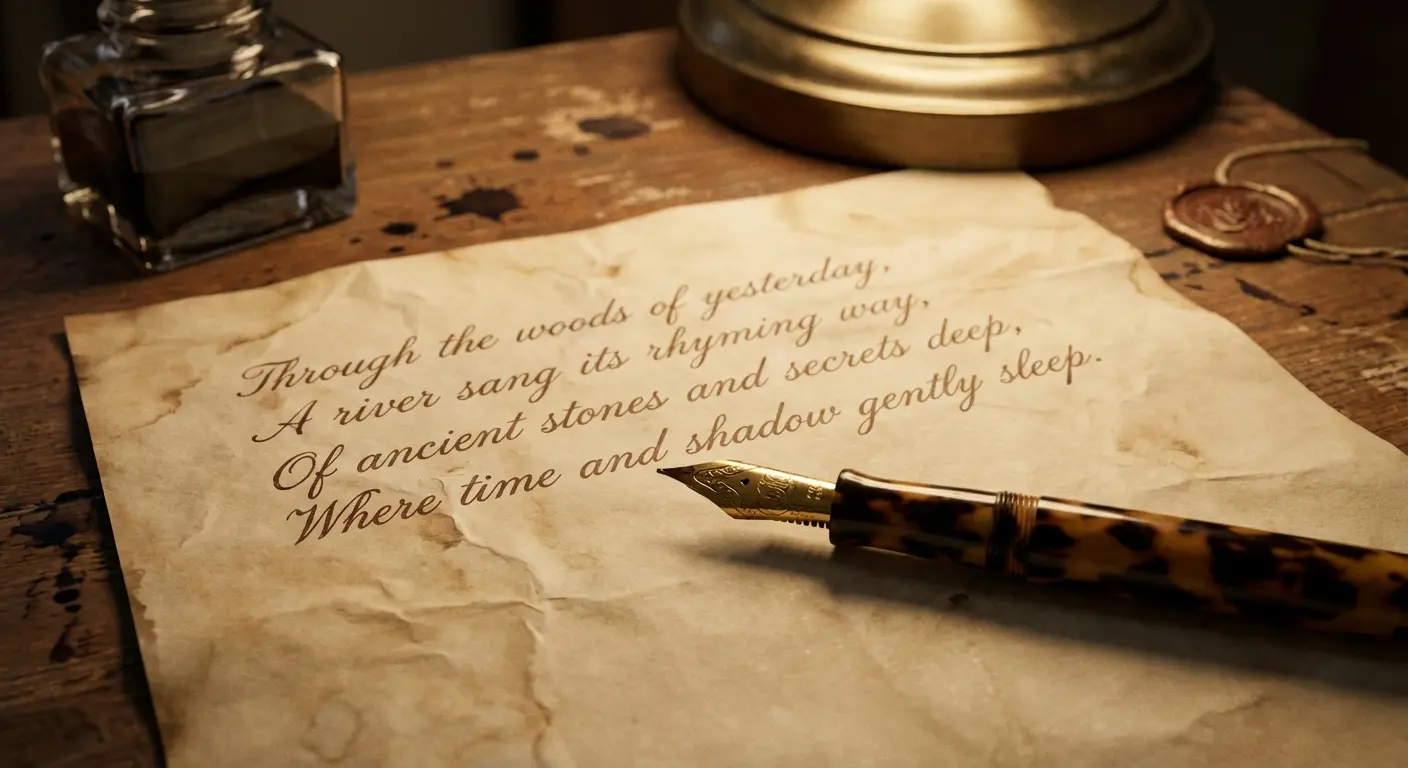 Through the woods of yesterday,
A river sang its rhyming way,
Of ancient stones and secrets deep,
Where time and shadow gently sleep.